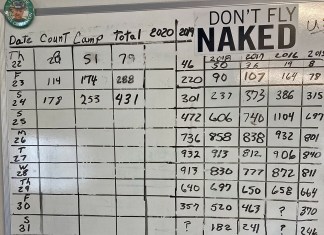 DON'T FLY
NAKED
Date Count Camp Total 2020 2019 2018 2017 2016
Th 22 28 51 79 46 50 76 19 8
F 23 114 174 288 220 90 107 164 78
S 24 178 253 431 301 237 373 386 315
S 25 472 606 740 1104 697
M 26 736 858 838 932 801
T 27 932 913 812 906 840
W 28 913 830 777 872 811
Th 29 640 697 650 658 664
F 30 357 520 463 ? 370
S 31 ? 182 241 ? 246